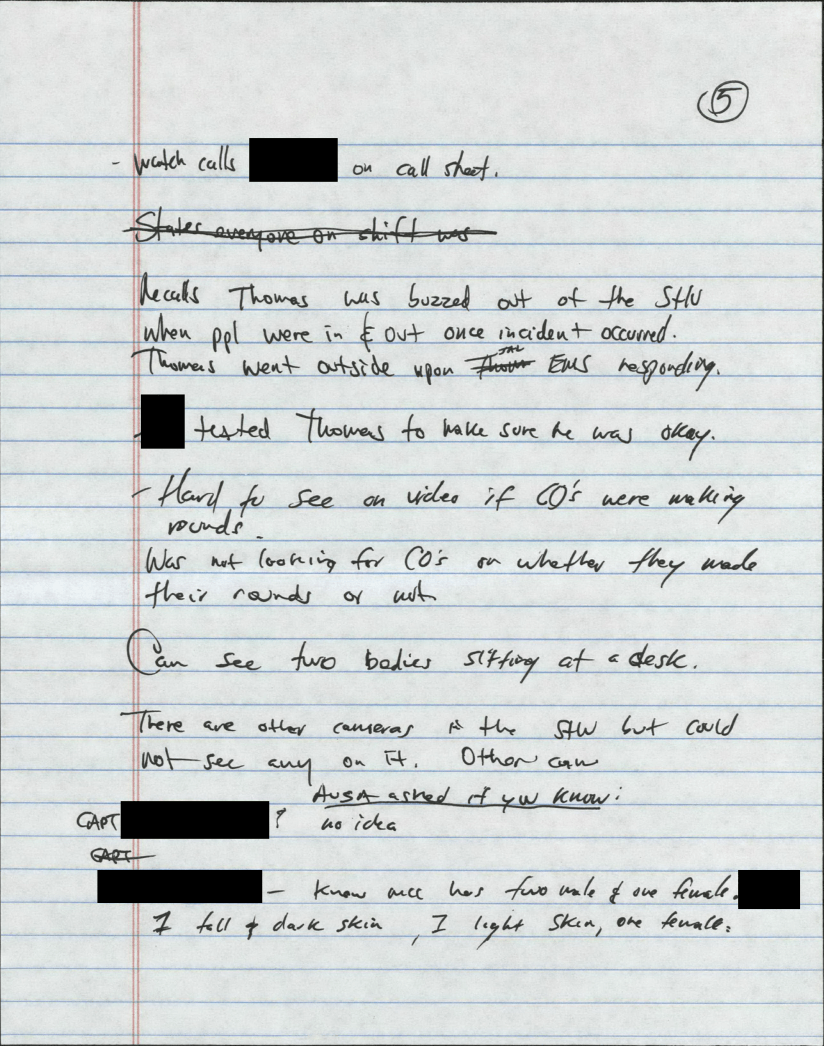 5
- watch calls on call sheet.
States everyone on shift was
Recalls Thomas was buzzed out of the SHU
when ppl were in & out once incident occurred.
Thomas went outside upon EMS responding.
- texted Thomas to make sure he was okay.
- Hard to see on video if CO's were making
rounds.
Was not looking for CO's on whether they made
their rounds or not
Can see two bodies sitting at a desk.
There are other cameras in the SHU but could
not see any on it. Other cam
AUSA asked if you know:
CAPT ? no idea
CAPT
- know mcc has two male & one female.
1 tall & dark skin, 1 light skin, one female.